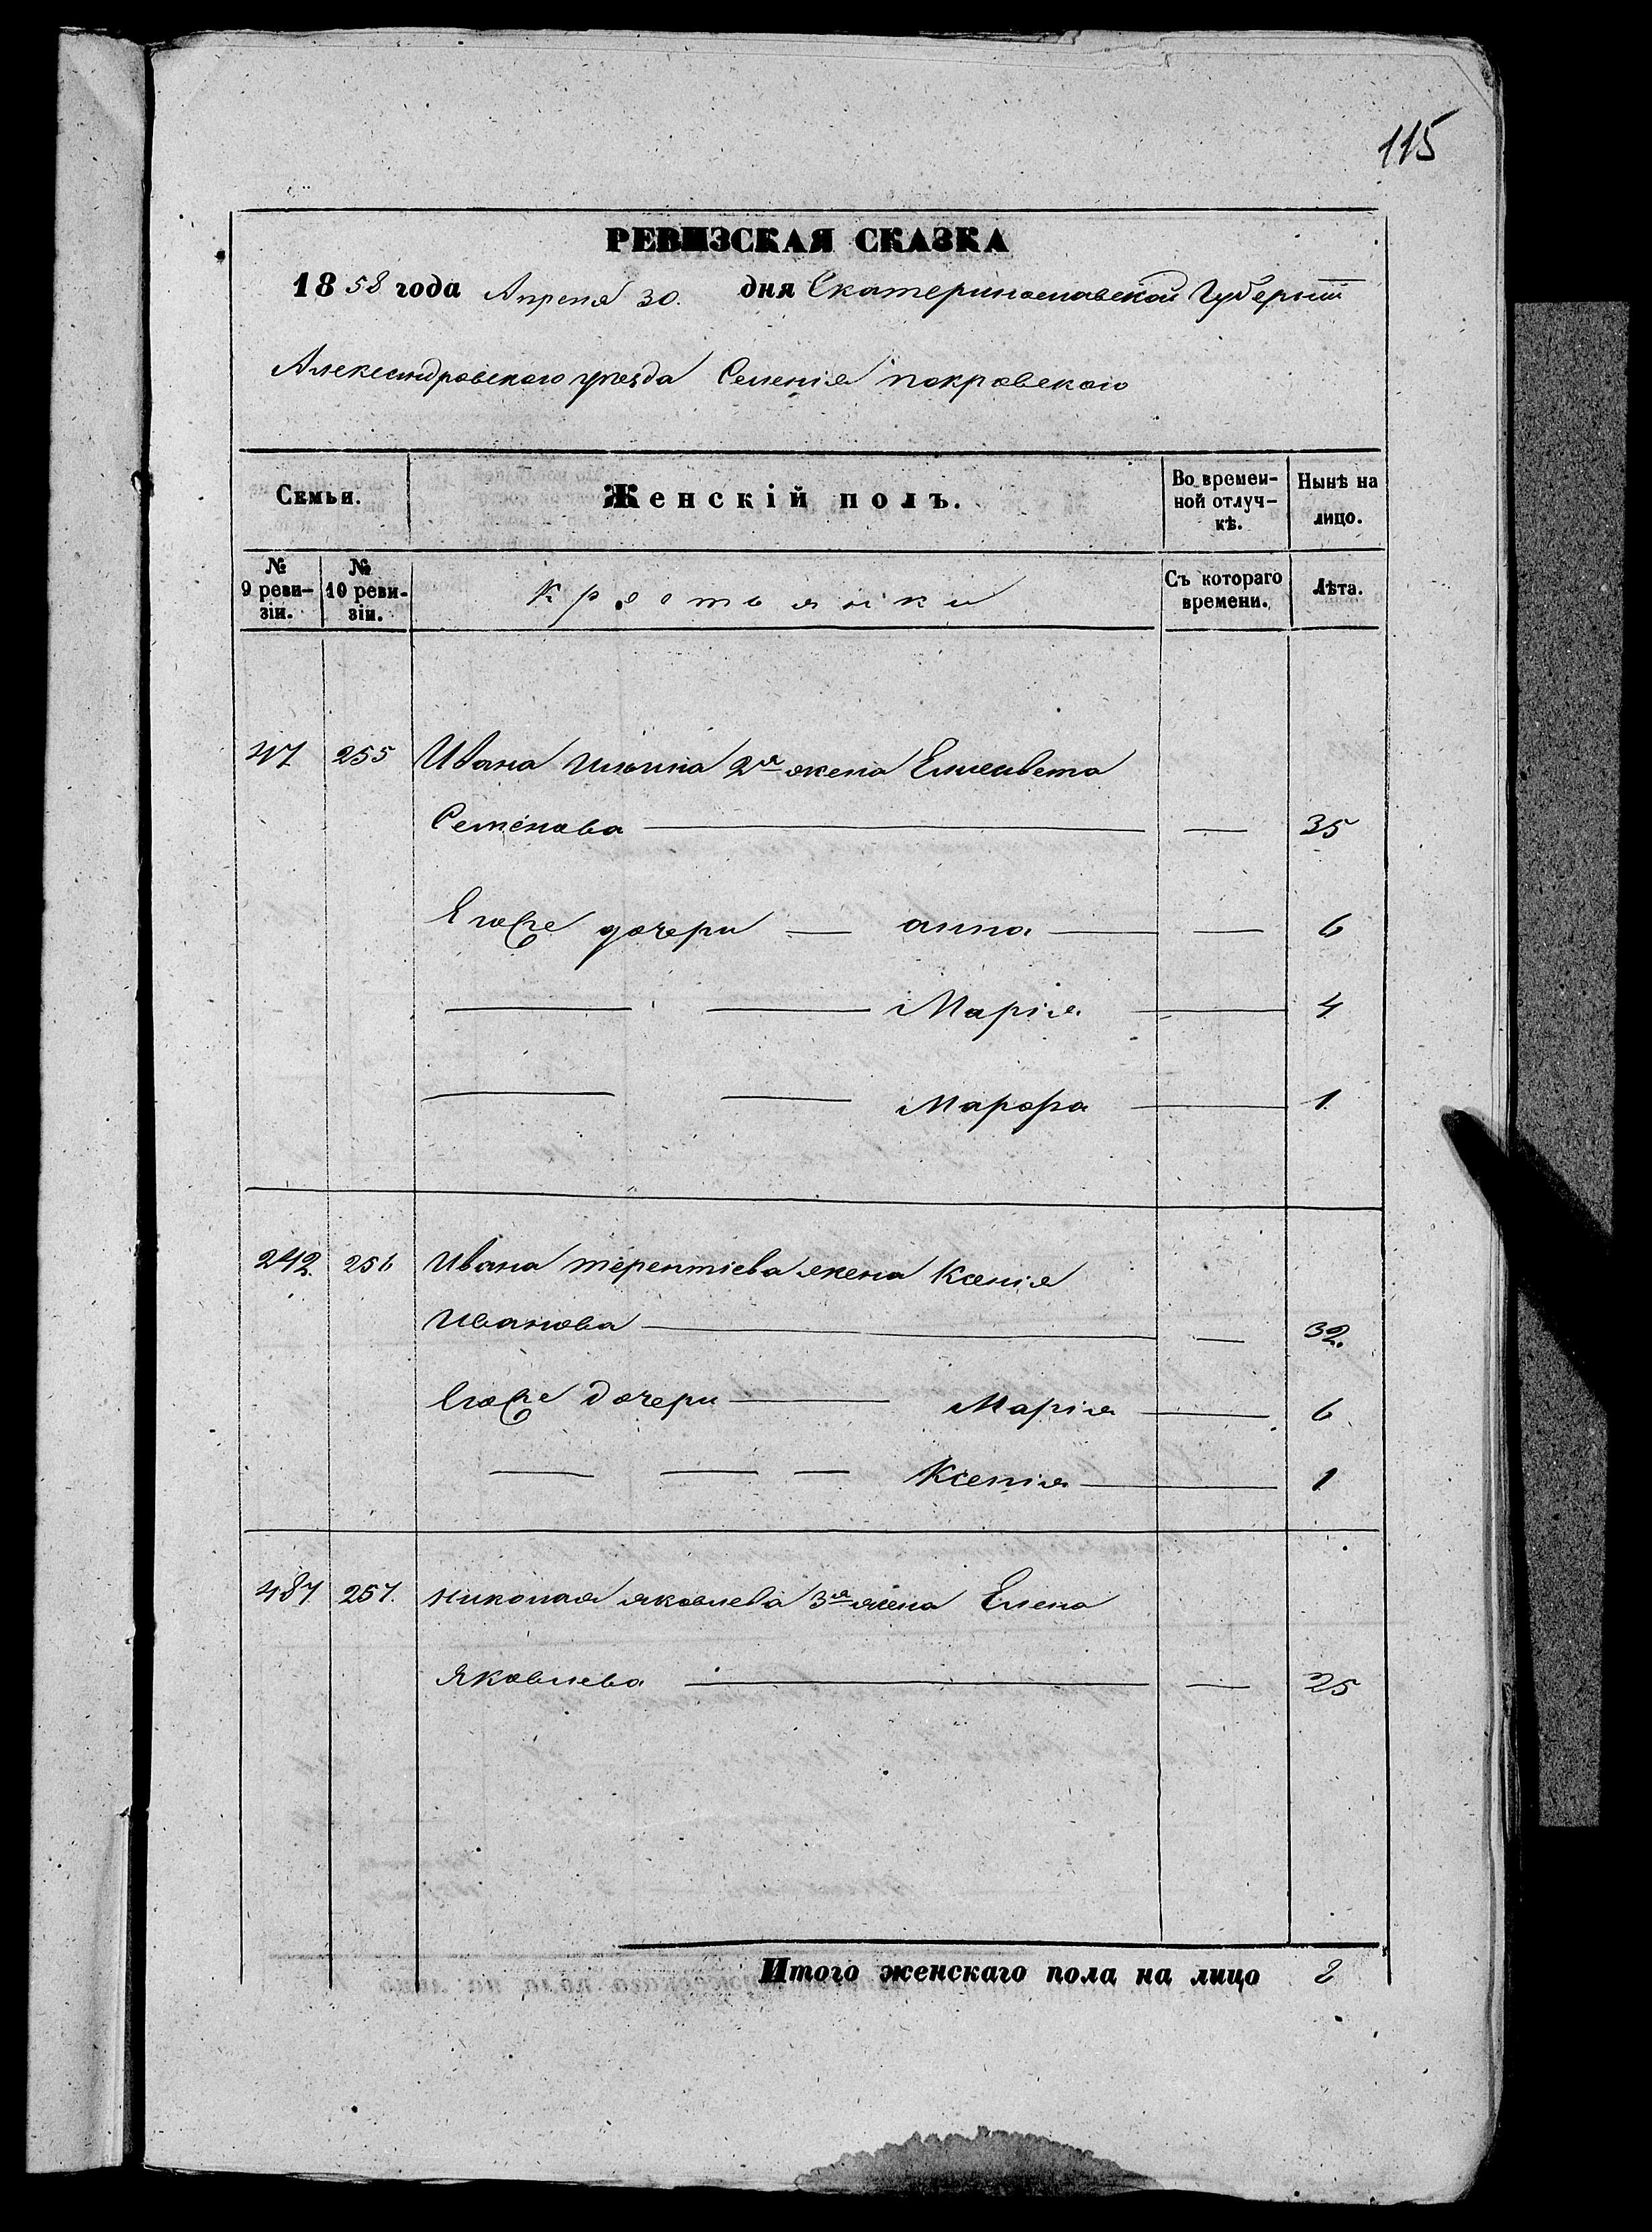 115
РЕВИЗСКАЯ СКАЗКА
1858 года Апреля 30. дня Екатеринославской Губерніи
Александровского уезда Селенія покровского
Семьи. Женскій полъ. Во времен-ной отлуч-кѣ. Нынѣ на лицо.
№ 9 реви-зіи. № 10 реви-зіи. Крестьянки Съ котораго времени. Лѣта.
47 255 Ивана Ильина 2я жена Елисавета
Семенова — 35
Егоже дочери — анна — 6
Марія — 4
Марфа — 1
242. 256 Ивана терентіева жена Ксенія
Иванова — 32.
Егоже дочери — Марія — 6
Ксенія — 1
487 257. николая яковлева 3я жена Елена
Яковлева — 25
Итого женскаго пола на лицо 8